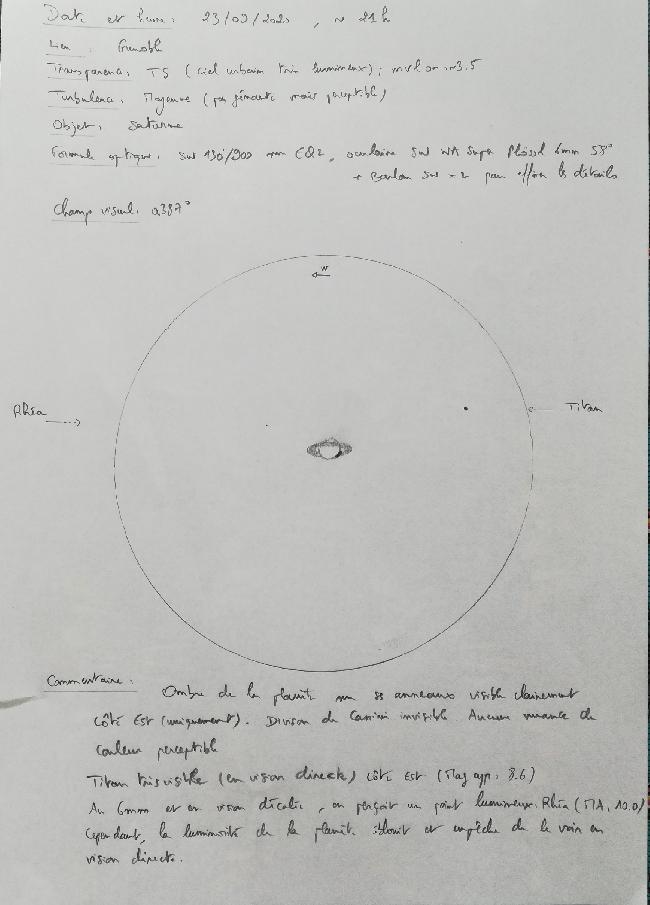 Date et heure : 23/09/2020, ~ 21h
Lieu : Grenoble
Transparence : T5 (ciel urbain très lumineux) ; mvlon ~3.5
Turbulence : Moyenne (pas gênante mais perceptible)
Objet : Saturne
Formule optique : SW 130/900 mm EQ2, oculaire SW WA Super Plössl 6mm 58°
+ Barlow SW ×2 pour affiner les détails
Champ visuel : 0.387°
W
Rhéa
Titan
Commentaire :
Ombre de la planète sur ses anneaux visible clairement
côté Est (uniquement). Division de Cassini invisible. Aucune nuance de
couleur perceptible
Titan très visible (en vision directe) côté Est (Mag app. 8.6)
Au 6mm et en vision décalée, on perçoit un point lumineux: Rhéa (MA. 10.0)
Cependant, la luminosité de la planète éblouit et empêche de le voir en
vision directe.